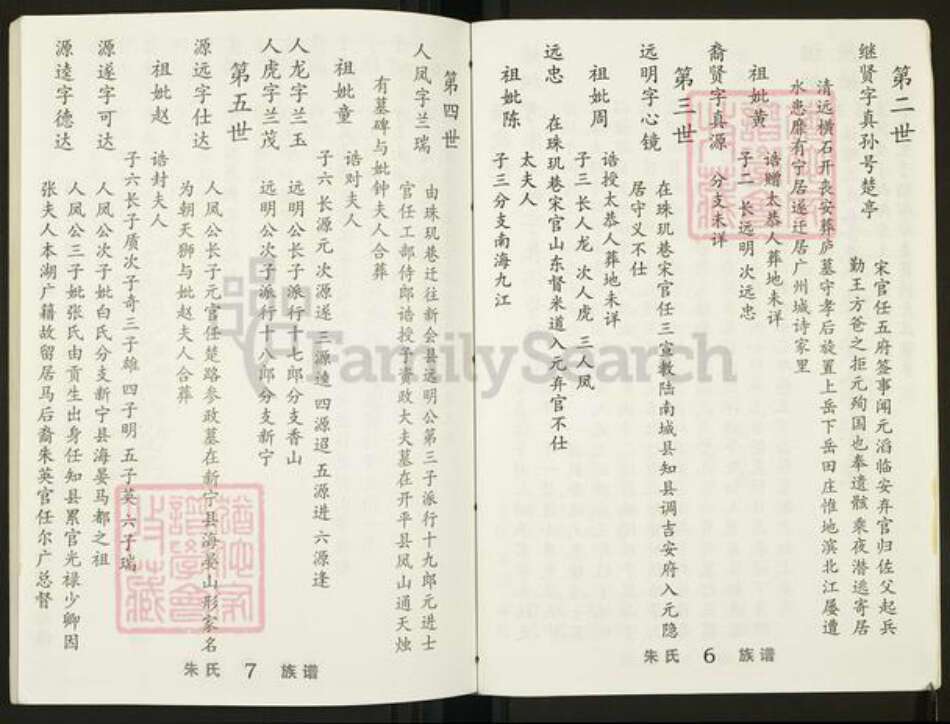 第二世
继贤字真孙号楚亭
宋官任五府签事闻元滔临安弃官归佐父起兵
勤王方爸之拒元殉国也奉遗骸乘夜潜逃寄居
清远横石开丧安葬庐墓守孝后旋置上岳下岳田庄惟地滨北江屡遭
水患靡有宁居遂迁居广州城诗家里
祖妣黄
诰赠太恭人葬地未详
子二 长远明 次远忠
裔贤字真源 分支未详
第三世
远明字心镜
在珠玑巷宋官任三宣教陆南城县知县调吉安府入元隐
居守义不仕
祖妣周
诰授太恭人葬地未详
子三 长人龙 次人虎 三人凤
远忠 在珠玑巷宋官山东督米道入元弃官不仕
祖妣陈
太夫人
子三分支南海九江
朱氏 6 族谱
第四世
人凤字兰瑞
由珠玑巷迁往新会县远明公第三子派行十九郎元进士
官任工部侍郎诰授予资政大夫墓在开平县凤山通天烛
有墓碑与妣钟夫人合葬
祖妣童
诰对夫人
子六 长源元 次源遂 三源逵 四源迢 五源进 六源逢
人龙字兰玉 远明公长子派行十七郎分支香山
人虎字兰茂 远明公次子派行十八郎分支新宁
第五世
源远字仕达
人凤公长子元官任楚路参政墓在新宁县海晏山形家名
为朝天狮与妣赵夫人合葬
祖妣赵
诰封夫人
子六长子质次子奇三子雄四子明五子英六子瑞
源遂字可达 人凤公次子妣白氏分支新宁县海晏马都之祖
源逵字德达 人凤公三子妣张氏由贡生出身任知县累官光禄少卿因
张夫人本湖广籍故留居马后裔朱英官任尔广总督
朱氏 7 族谱
FamilySearch